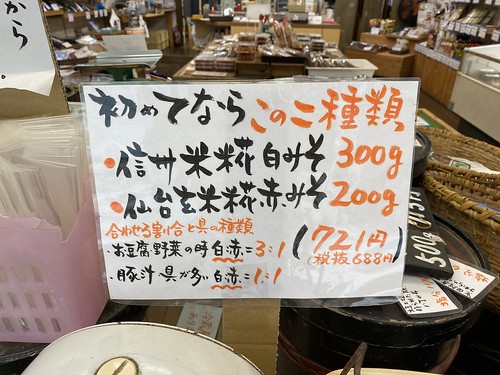 から
初めてなら この二種類
・信州米糀白みそ 300g
・仙台玄米糀赤みそ 200g
合わせる割り合と具の種類
・お豆腐野菜の時 白:赤=3:1
・豚汁具が多い 白:赤=1:1
(721円
(税抜688円)
500g